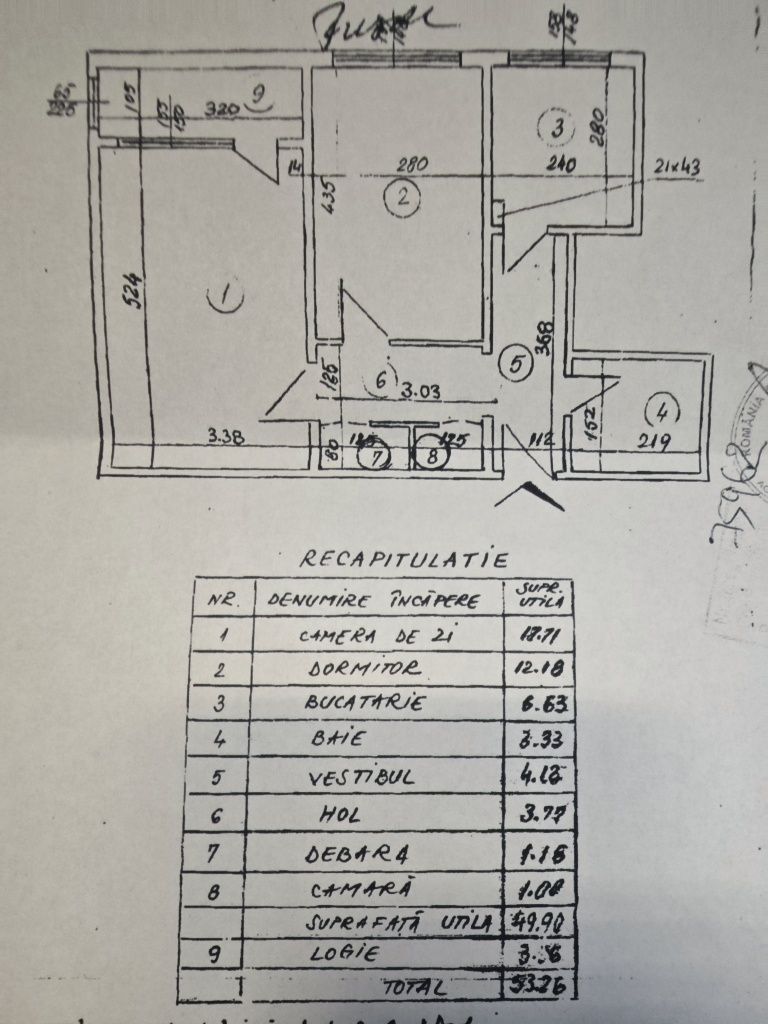 9
105
320
155
150
14
280
2
435
3
280
240
21x43
524
1
368
5
185
6
3.03
4
152
3.38
80
125
7
8
125
112
219
ROMÂNIA
RECAPITULATIE
NR. DENUMIRE ÎNCĂPERE SUPR. UTILA
1 CAMERA DE ZI 17.71
2 DORMITOR 12.18
3 BUCATARIE 6.63
4 BAIE 3.33
5 VESTIBUL
6 HOL 3.77
7 DEBARA
8 CAMARĂ
SUPRAFAȚĂ UTILA 49.90
9 LOGIE 3.36
TOTAL 53.26